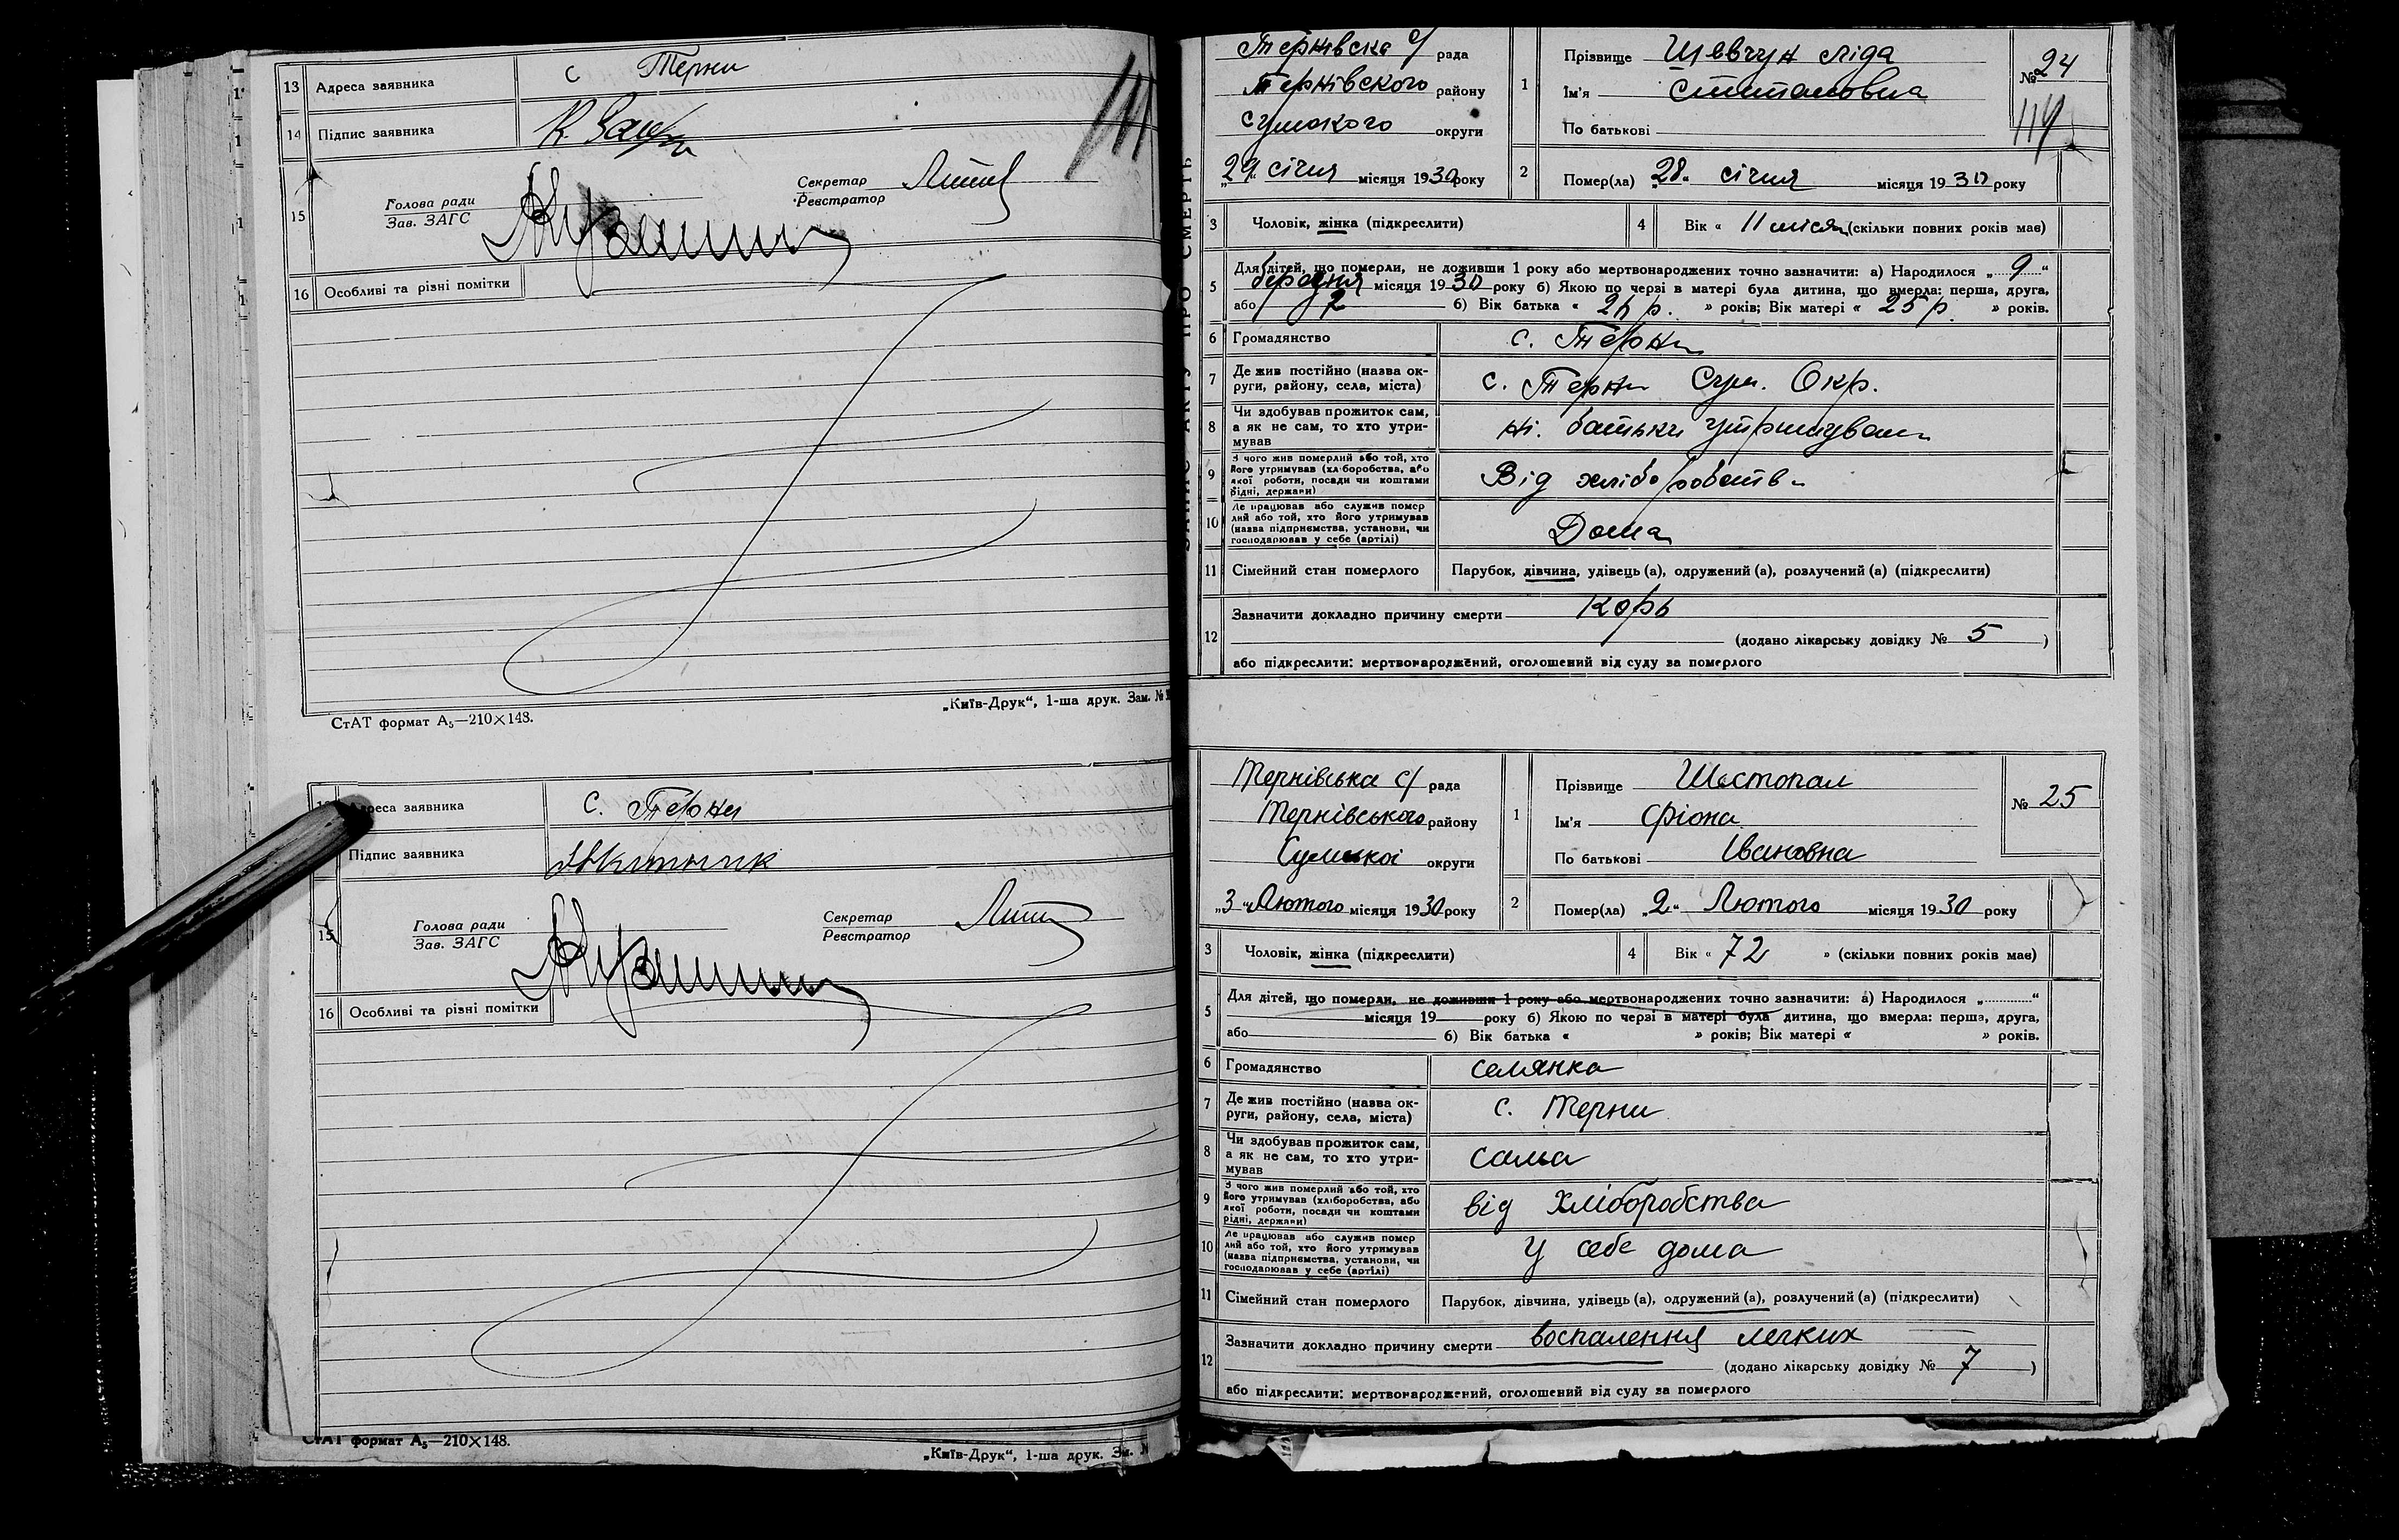 13 Адреса заявника с Терни
14 Підпис заявника
15 Голова ради
Зав. ЗАГС
Секретар
Реєстратор
16 Особливі та різні помітки
СтАТ формат А5—210×148.
„Київ-Друк“, 1-ша друк. Зам. №
Адреса заявника с. Терни
Підпис заявника
15 Голова ради
Зав. ЗАГС
Секретар
Реєстратор
16 Особливі та різні помітки
СтАТ формат А5—210×148.
„Київ-Друк“, 1-ша друк. Зам.
Тернівска с/ рада
Тернівского району
Сумского округи
„29“ січня місяця 1930 року
1 Прізвище Шевчун Ліда
Ім'я Степановна
По батькові
№ 24
114
2 Помер(ла) „28“ січня місяця 1930 року
3 Чоловік, жінка (підкреслити)
4 Вік « 11 місяц (скільки повних років має)
5 Для дітей, що померли, не доживши 1 року або мертвонароджених точно зазначити: а) Народилося „9“
березня місяця 1930 року б) Якою по черзі в матері була дитина, що вмерла: перша, друга,
або 2 б) Вік батька « р. » років; Вік матері « 25 р. » років.
6 Громадянство с. Терни
7 Де жив постійно (назва округи, району, села, міста) с. Терни Сум. Окр.
8 Чи здобував прожиток сам, а як не сам, то хто утримував ні. батьки утримували
9 З чого жив померлий або той, хто його утримував (хліборобства, або якої роботи, посади чи коштами рідні, держави) Від хліборобства
10 Де працював або служив померлий або той, хто його утримував (назва підприємства, установи, чи господарював у себе (артілі) Дома
11 Сімейний стан померлого Парубок, дівчина, удівець (а), одружений (а), розлучений (а) (підкреслити)
12 Зазначити докладно причину смерти Корь
(додано лікарську довідку № 5 )
або підкреслити: мертвонароджений, оголошений від суду за померлого
Тернівська с/ рада
Тернівського району
Сумської округи
„3“ Лютого місяця 1930 року
1 Прізвище Шестопал
Ім'я Фіона
По батькові Івановна
№ 25
2 Помер(ла) „2“ Лютого місяця 1930 року
3 Чоловік, жінка (підкреслити)
4 Вік « 72 » (скільки повних років має)
5 Для дітей, що померли, не доживши 1 року або мертвонароджених точно зазначити: а) Народилося „..........“
місяця 19 року б) Якою по черзі в матері була дитина, що вмерла: перша, друга,
або б) Вік батька « » років; Вік матері « » років.
6 Громадянство селянка
7 Де жив постійно (назва округи, району, села, міста) с. Терни
8 Чи здобував прожиток сам, а як не сам, то хто утримував сама
9 З чого жив померлий або той, хто його утримував (хліборобства, або якої роботи, посади чи коштами рідні, держави) від хліборобства
10 Де працював або служив померлий або той, хто його утримував (назва підприємства, установи, чи господарював у себе (артілі) У себе дома
11 Сімейний стан померлого Парубок, дівчина, удівець (а), одружений (а), розлучений (а) (підкреслити)
12 Зазначити докладно причину смерти воспалення легких
(додано лікарську довідку № 7 )
або підкреслити: мертвонароджений, оголошений від суду за померлого